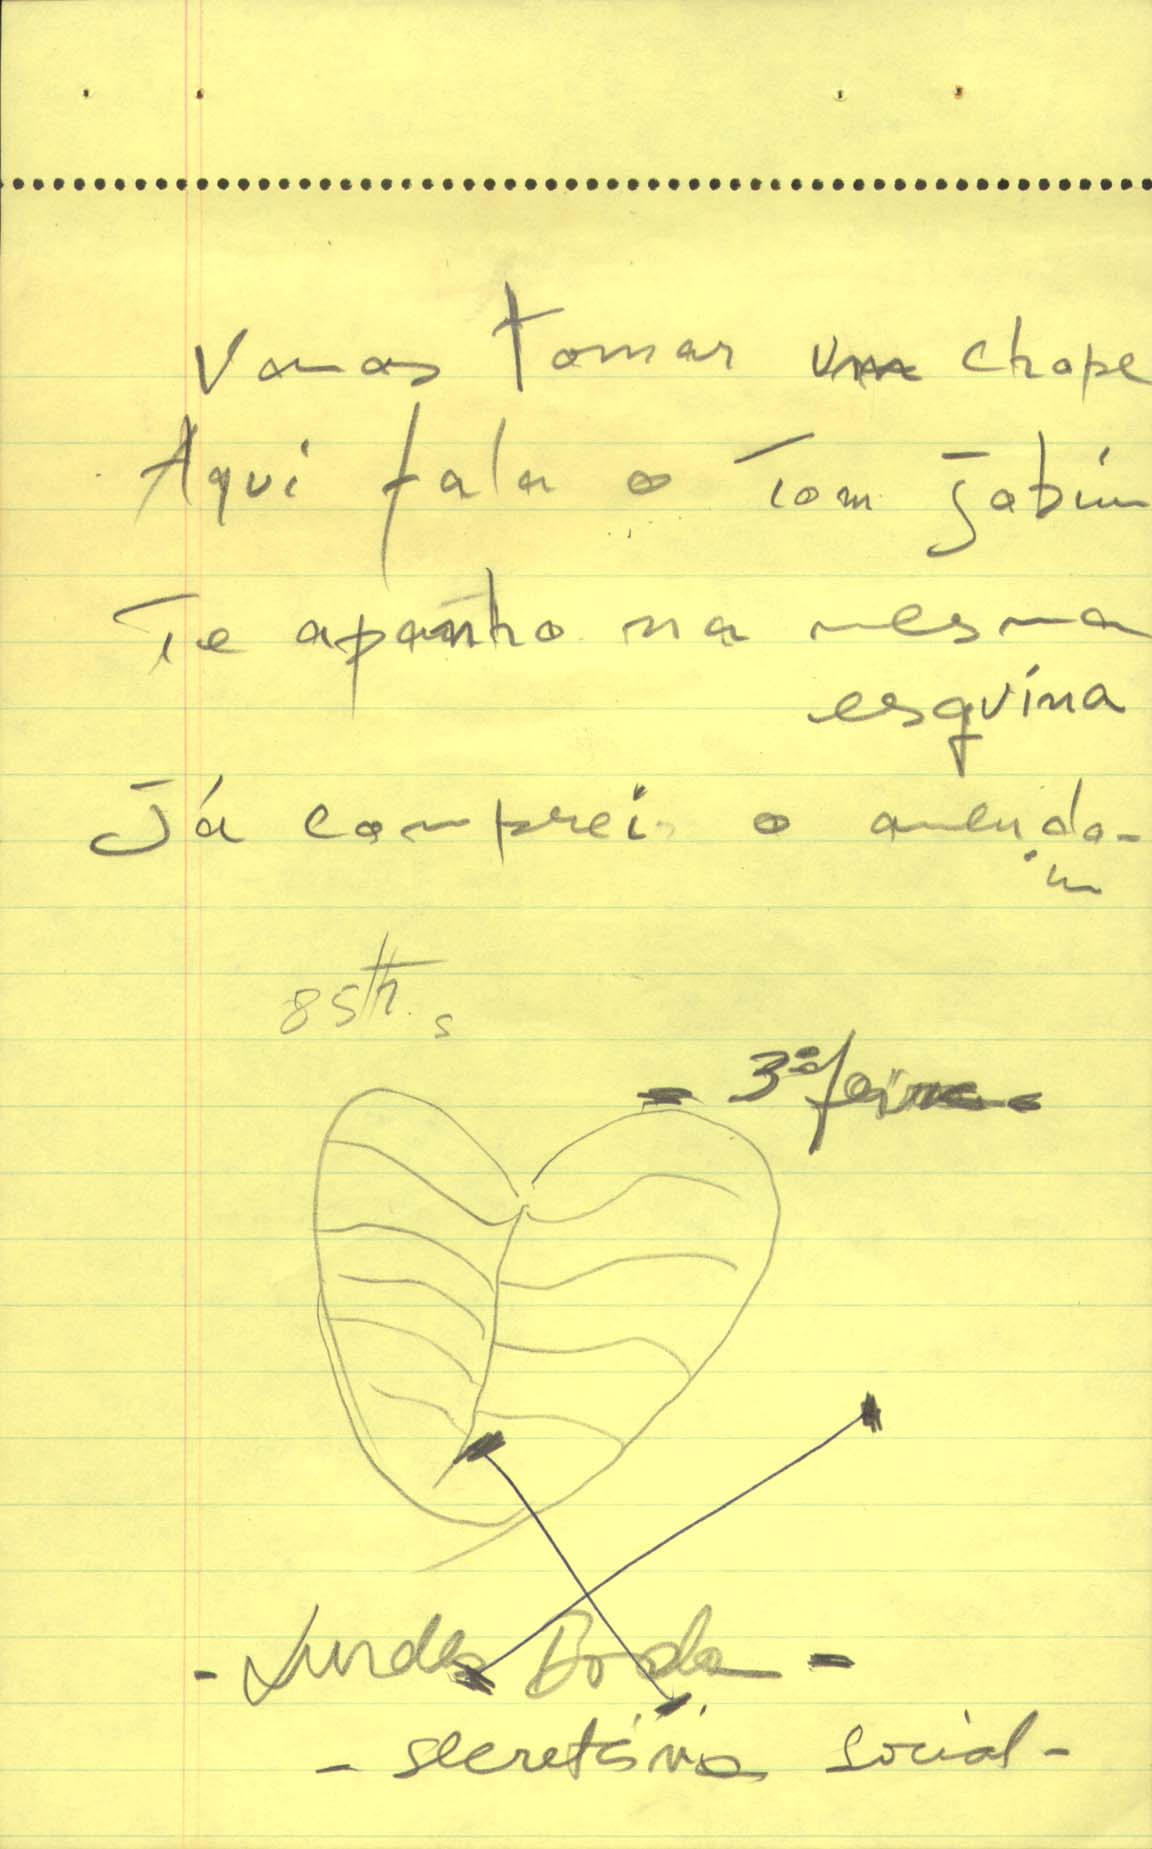 Vamos tomar um chope
Aqui fala o Tom Jobim
Te apanho na mesma
esquina
Já comprei o amendo-
im
85th s
- 3ª feira -
- Lurdes -
- secretária social -